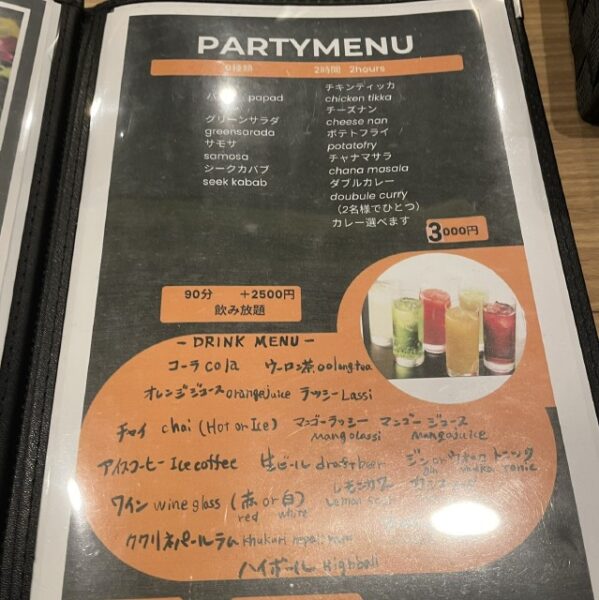 PARTYMENU
種類 2時間 2hours
papad
グリーンサラダ
greensarada
サモサ
samosa
シークカバブ
seek kabab
チキンティッカ
chicken tikka
チーズナン
cheese nan
ポテトフライ
potatofry
チャナマサラ
chana masala
ダブルカレー
doubule curry
(2名様でひとつ)
カレー選べます
3000円
90分 +2500円
飲み放題
- DRINK MENU -
コーラ cola ウーロン茶 oolongtea
オレンジジュース orangejuice ラッシー Lassi
チャイ chai (Hot or Ice) マンゴーラッシー マンゴージュース
mangolassi mangojuice
アイスコーヒー Ice coffee 生ビール draftbeer ジン or ウォッカ トニック
gin vodka tonic
ワイン wine glass (赤 or 白) レモンサワー
red white Lemon sour
ククリネパールラム khukuri nepal rum
ハイボール Highball